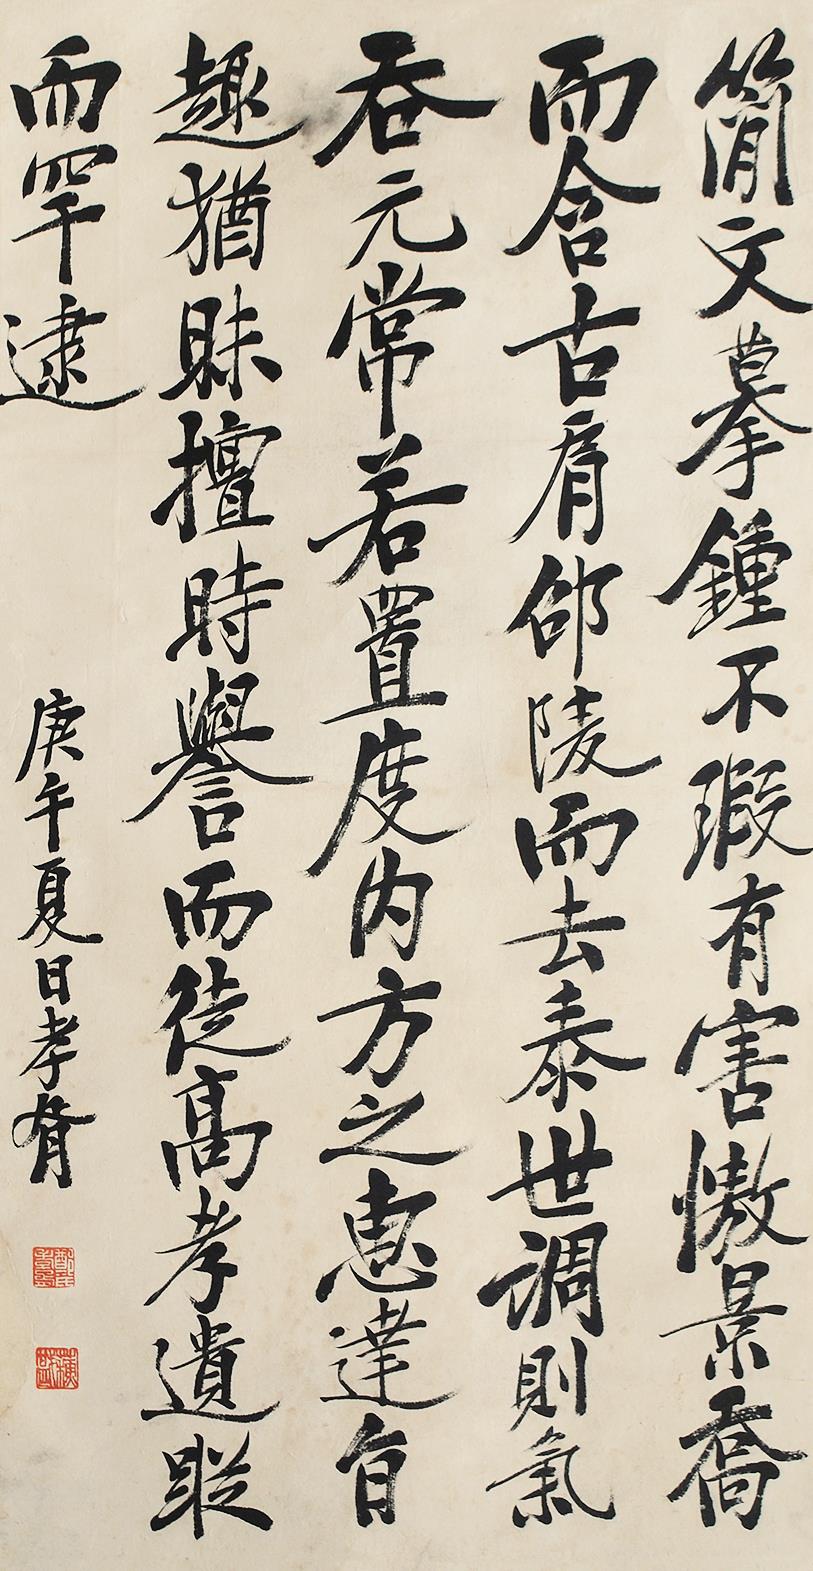 簡文摹鍾不瑕有害憿景喬
而含古肩邰陵而去泰世調則氣
吞元常若置度內方之惠達自
趣猶眛擅時譽而徒高孝遺蹤
而罕逮
庚午夏日孝胥